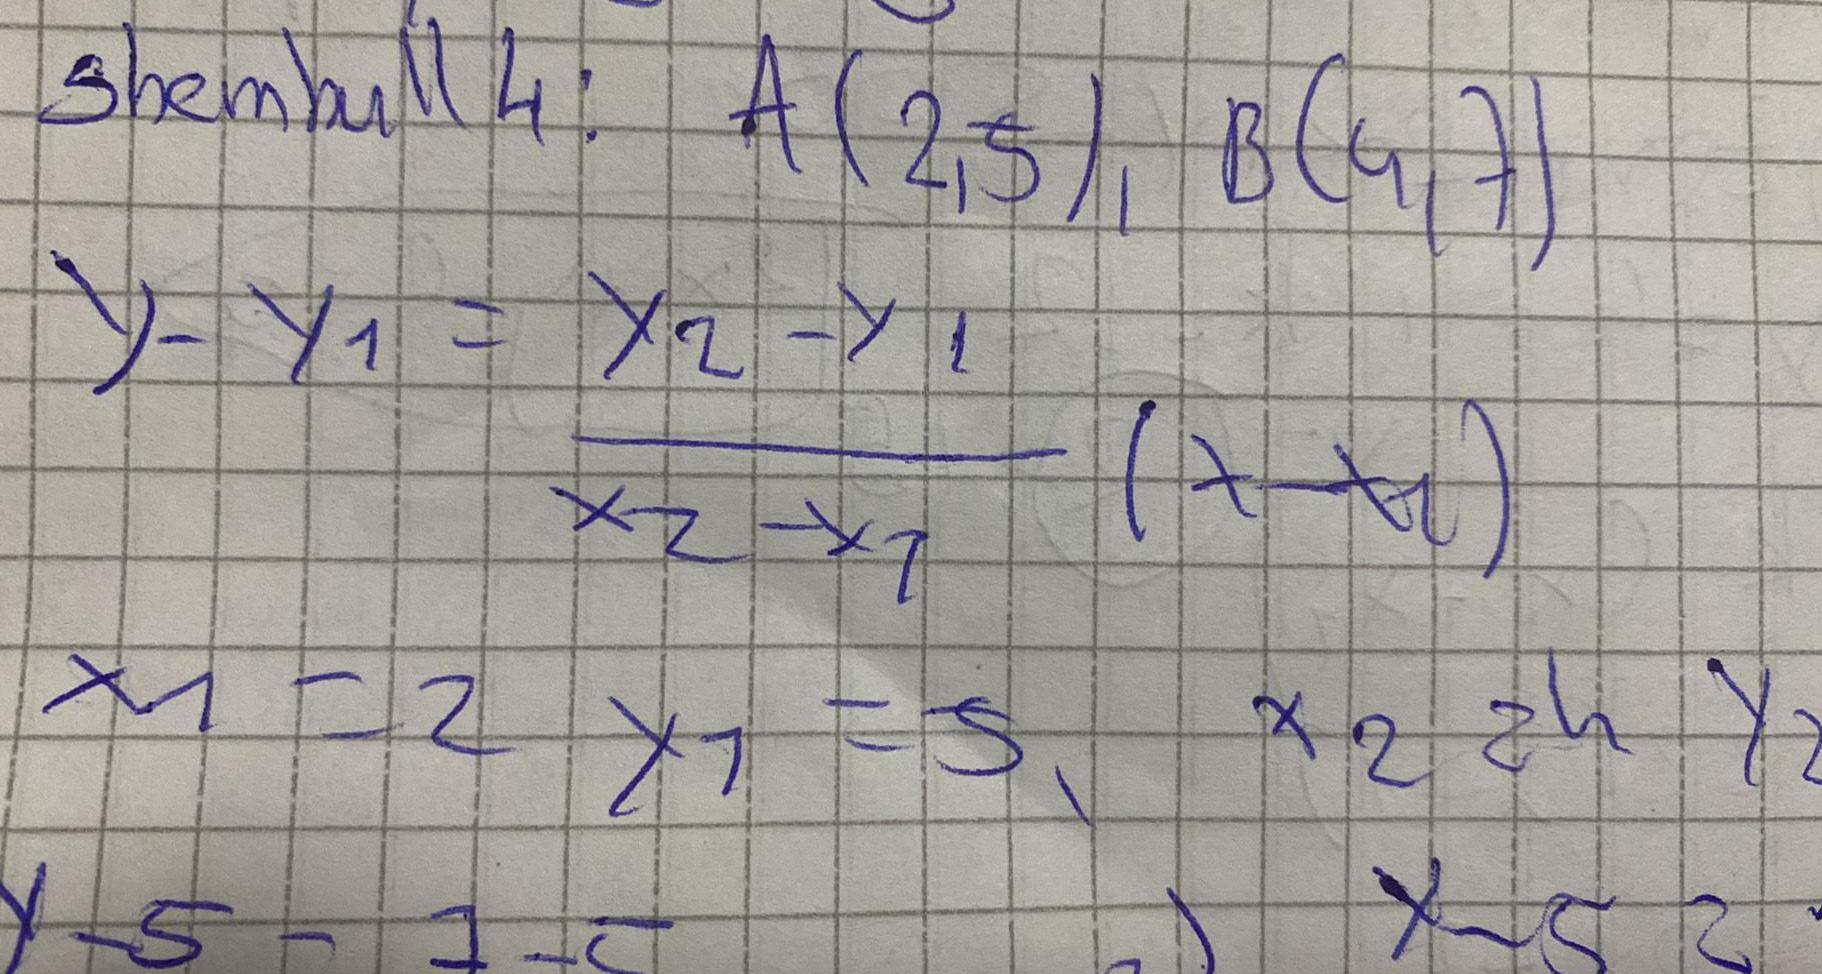 Shembull 4: A(2,5), B(4,7)
y - y1 = y2 - y1
x2 - x1 (x - x1)
x1 = 2 y1 = 5, x2 = 4 y2
y - 5 = 7 - 5 ) y - 5 =